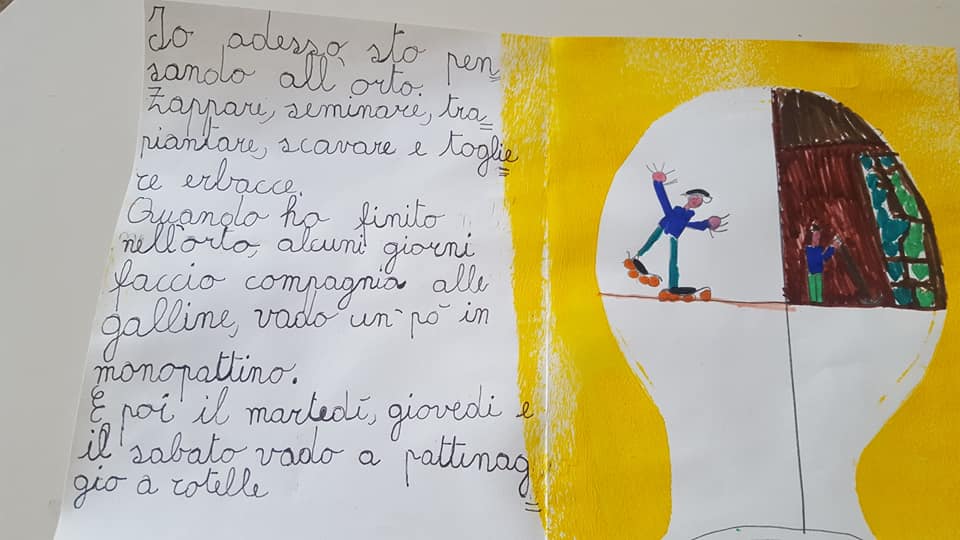 Io adesso sto pen=
sando all'orto.
Zappare, seminare, tra=
piantare, scavare e toglie=
re erbacce.
Quando ho finito
nell'orto, alcuni giorni
faccio compagnia alle
galline, vado un-pò in
monopattino.
E poi il martedì, giovedì e
il sabato vado a pattinag=
gio a rotelle